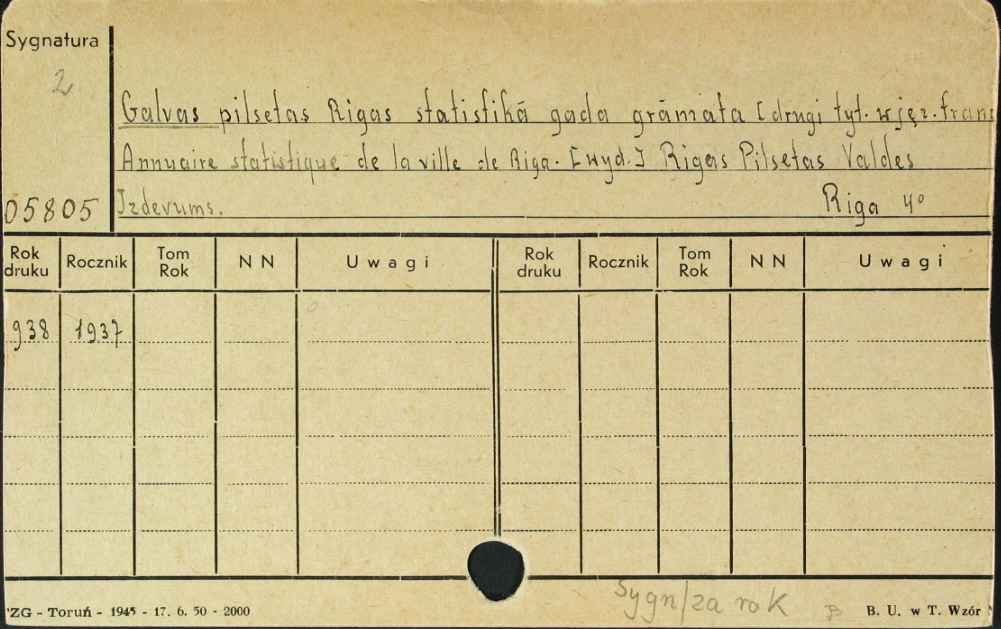 Sygnatura
2
Galvas pilsetas Rigas statistikā gada grāmata [drugi tyt. w jęz. franc
Annuaire statistique de la ville de Riga. [wyd.] Rigas Pilsetas Valdes
05805 Izdevums. Riga 4º
Rok druku Rocznik Tom Rok N N Uwagi Rok druku Rocznik Tom Rok N N Uwagi
938 1937
Sygn/za rok B
ZG - Toruń - 1945 - 17. 6. 50 - 2000 B. U. w T. Wzór